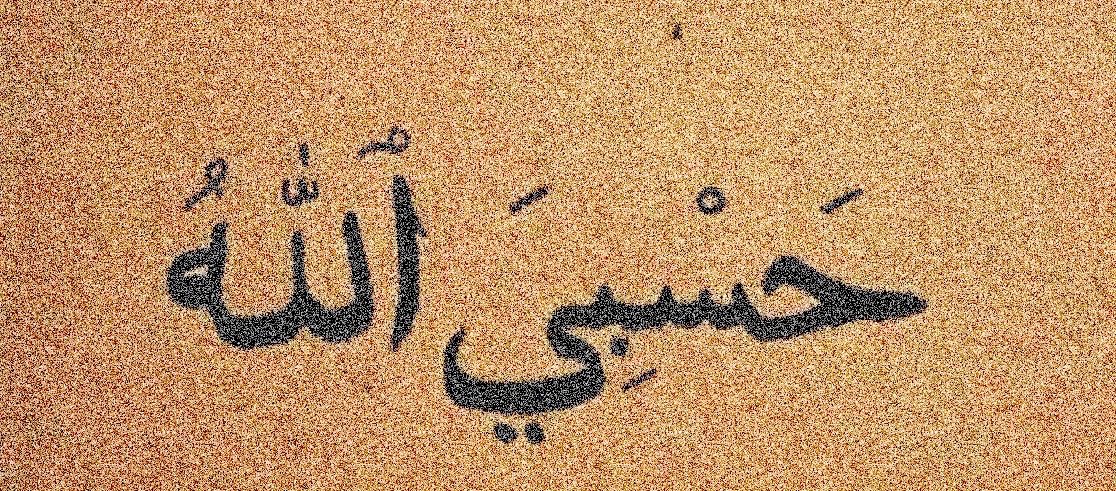 حَسْبِيَ ٱللَّهُ